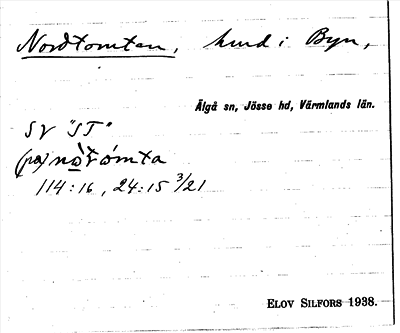 Nordtomten, hmd i Byn,
Älgå sn, Jösse hd, Värmlands län.
SV "ST"
(på) nò̱t́ómta
114:16, 24:15 3/21
ELOV SILFORS 1938.